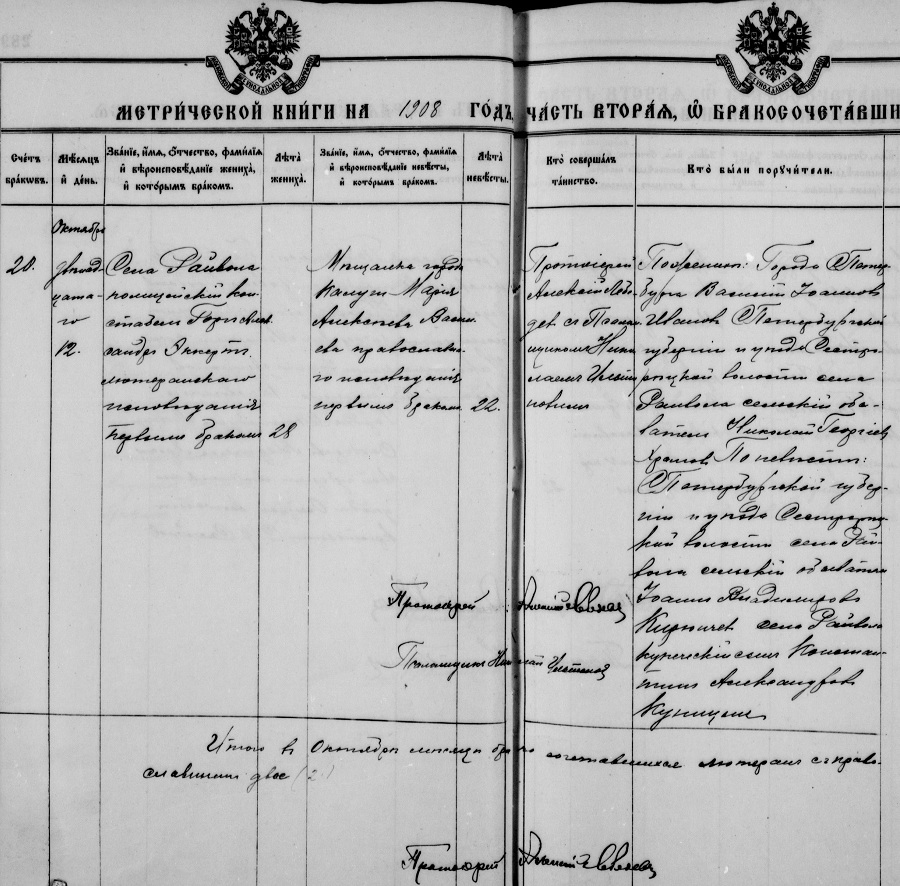 МЕТРИЧЕСКОЙ КНИГИ НА 1908 ГОДЪ, ЧАСТЬ ВТОРАЯ, Ѡ БРАКОСОЧЕТАВШИ
Счетъ
браковъ.
Мѣсяцъ
и день.
Званіе, имя, отчество, фамилія
и вѣроисповѣданіе жениха,
и которымъ бракомъ.
Лѣта
жениха.
Званіе, имя, отчество, фамилія
и вѣроисповѣданіе невѣсты,
и которымъ бракомъ.
Лѣта
невѣсты.
Кто совершалъ
таинство.
Кто были поручители.
Октябрь
20.
двѣнад
цата-
го
12.
Села Райвола
полицейскій кон
стабель
сандръ Эккертъ
лютеранскаго
исповѣданія
первымъ бракомъ
28
Мѣщанка города
Калуги Марія
Алексѣева Васил
ева православна
го исповѣданія
первымъ бракомъ
22.
Протоіерей
Алексѣй
съ Псалом
щикомъ Нико
лаемъ
По женихѣ: Города СПетер
бурга Василій Іоанновъ
Ивановъ СПетербургской
губерніи и уѣзда Сестро
рѣцкой волости села
Райвола сельскій обы-
ватель Николай Георгіевъ
Храмовъ По невѣстѣ:
СПетербургской губер-
ніи и уѣзда Сестрорѣц
кой волости села Рай-
вола сельскій обыватель
Іоаннъ Владиміровъ
Кирпичевъ села Райвола
купеческій сынъ Констан-
тинъ Александровъ
Куницынъ
Протоіерей Алексій
Псаломщикъ Николай
Итого въ Октябрѣ мѣсяцѣ бракосочетавшихся лютеранъ съ право-
славными двое (2)
Протоіерей Алексій